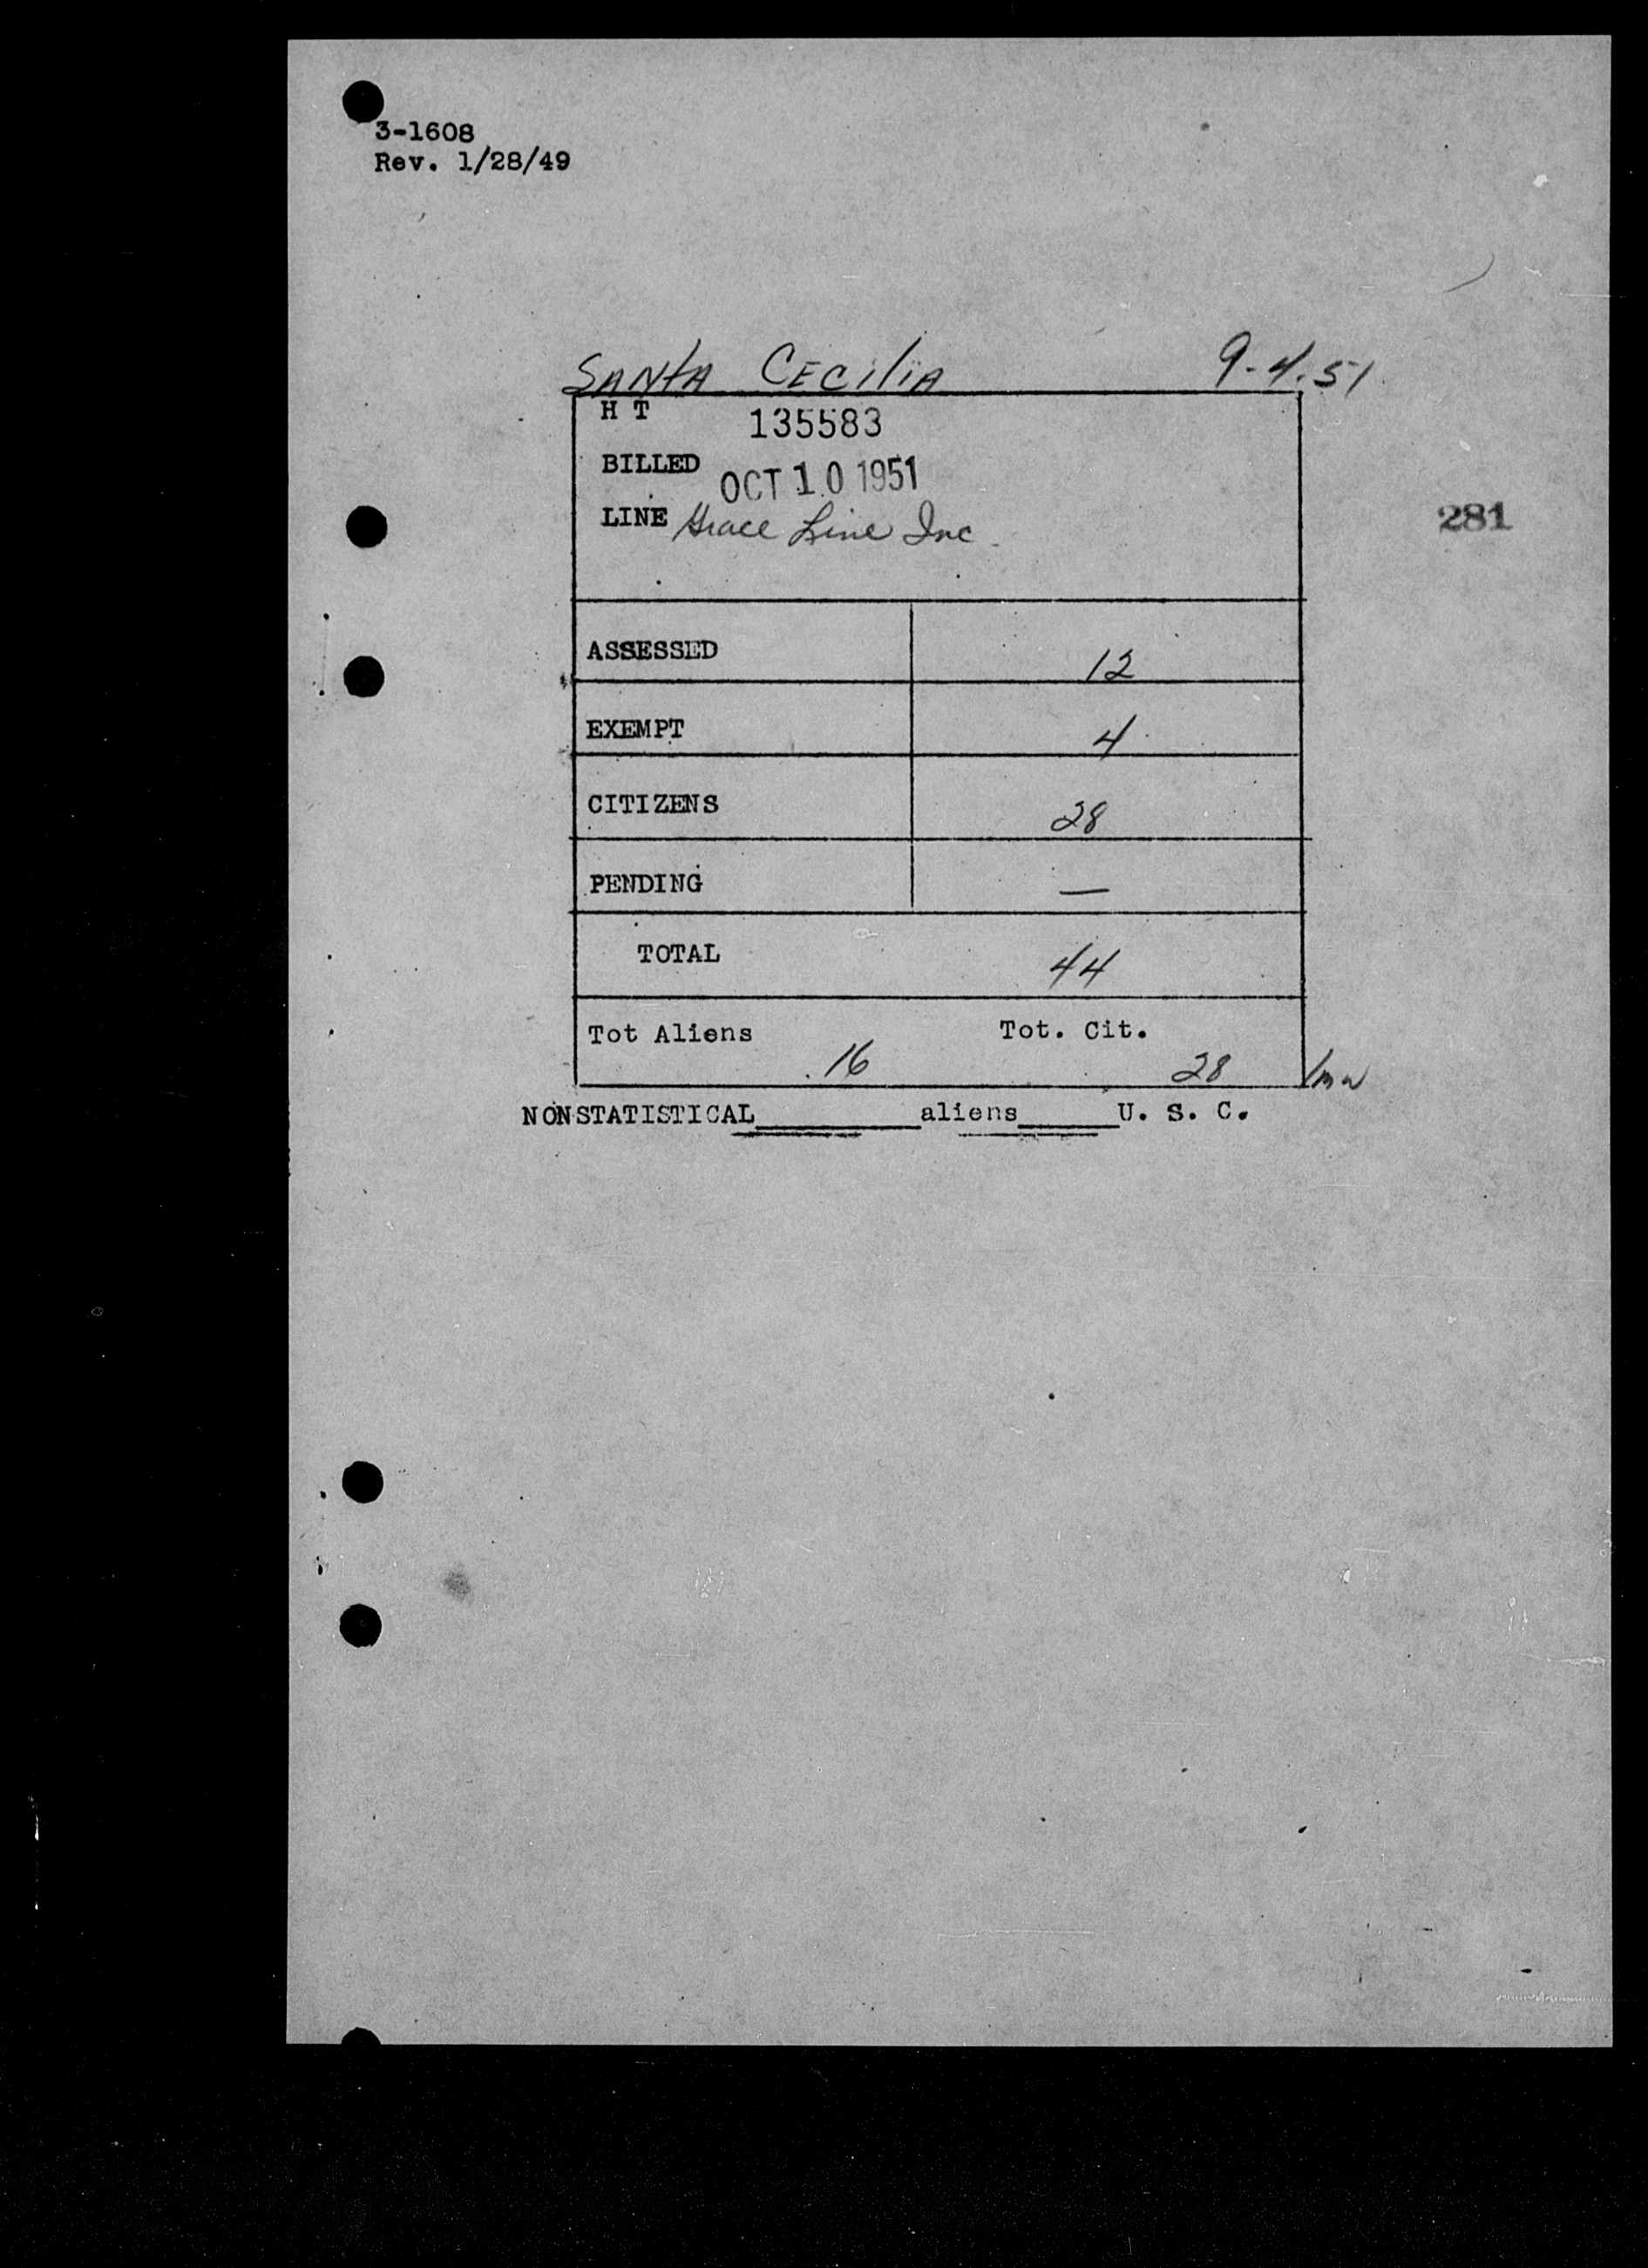 3-1608
Rev. 1/28/49
SANTA CECILIA 9-4-51
H T 135583
BILLED OCT 10 1951
LINE Grace Line Inc.
281
ASSESSED 12
EXEMPT 4
CITIZENS 28
PENDING —
TOTAL 44
Tot Aliens 16 Tot. Cit. 28
NONSTATISTICAL________aliens_____U. S. C.